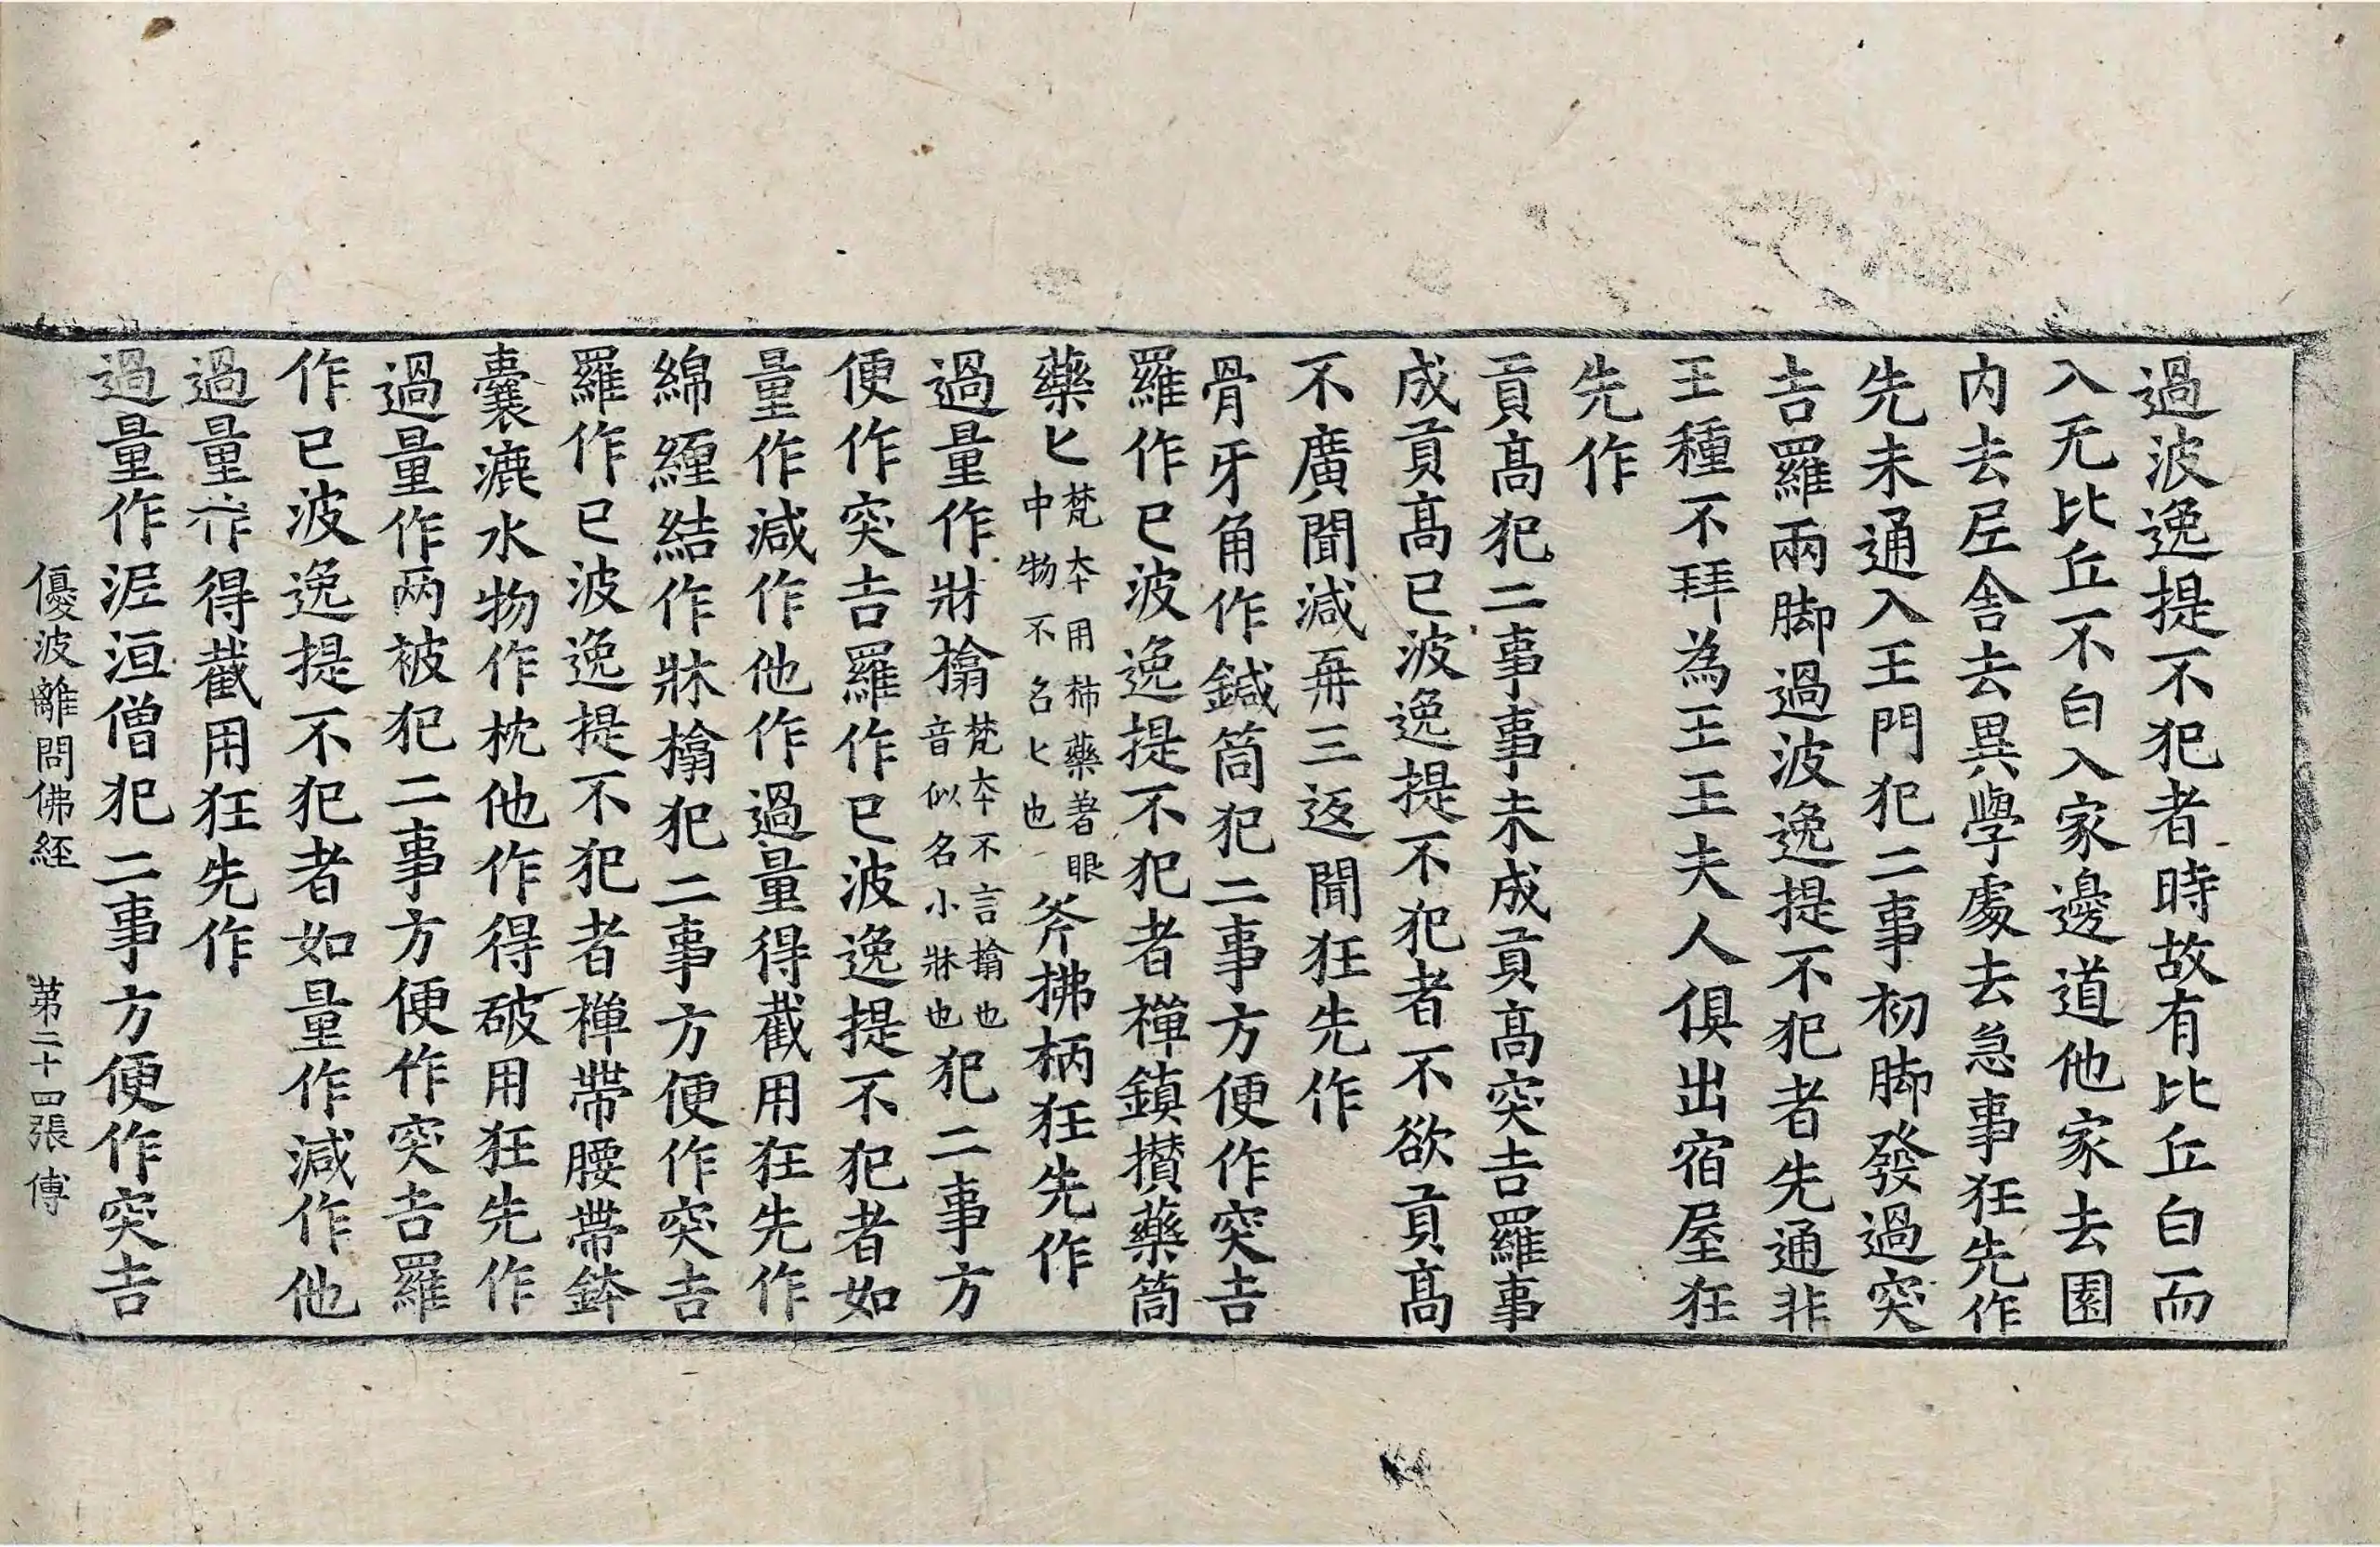 過波逸提不犯者時故有比丘白而
入无比丘不白入家邊道他家去園
内去𡰱舍去異學處去急事狂先作
先未通入王門犯二事初脚發過突
吉羅兩脚過波逸提不犯者先通非
王種不拜為王王夫人俱出宿屋狂
先作
貢髙犯二事事未成貢髙突吉羅事
成貢髙已波逸提不犯者不欲貢髙
不廣聞減再三返聞狂先作
骨牙角作鍼筒犯二事方便作突吉
羅作已波逸提不犯者襌鎮攅藥筒
藥匕梵夲用柿藥著眼中物不名匕也斧拂柄狂先作
過量作牀㩉梵夲不言㩉也音似名小牀也犯二事方
便作突吉羅作已波逸提不犯者如
量作減作他作過量得截用狂先作
綿纏結作牀㩉犯二事方便作突吉
羅作已波逸提不犯者襌帶腰帶鉢
囊漉水物作枕他作得破用狂先作
過量作两被犯二事方便作突吉羅
作已波逸提不犯者如量作減作他
過量作得截用狂先作
過量作泥洹僧犯二事方便作突吉
優波離問佛經 第二十四張 傅